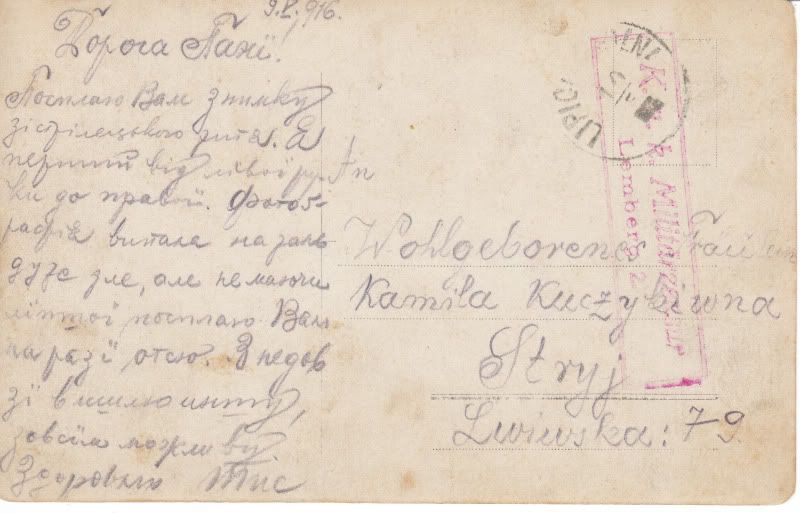 9.I.916.
Дорога Пані!
Посилаю Вам знимку
зі стрілецького
перший від лівої ру-
ки до правої. Фотог-
рафія випала на жаль
дуже зле, але не маючи
ліпшої посилаю Вам
на разі отсю. З недов
зі вишлю иншу,
зовсїм можливу.
Здоровлю Тис
An
Wohlgeborenes Fräulein
Kamila Kuczybiwna
Stryj
Lwiwska: 79.
K. u. k. Militärzensur
Lemberg 2